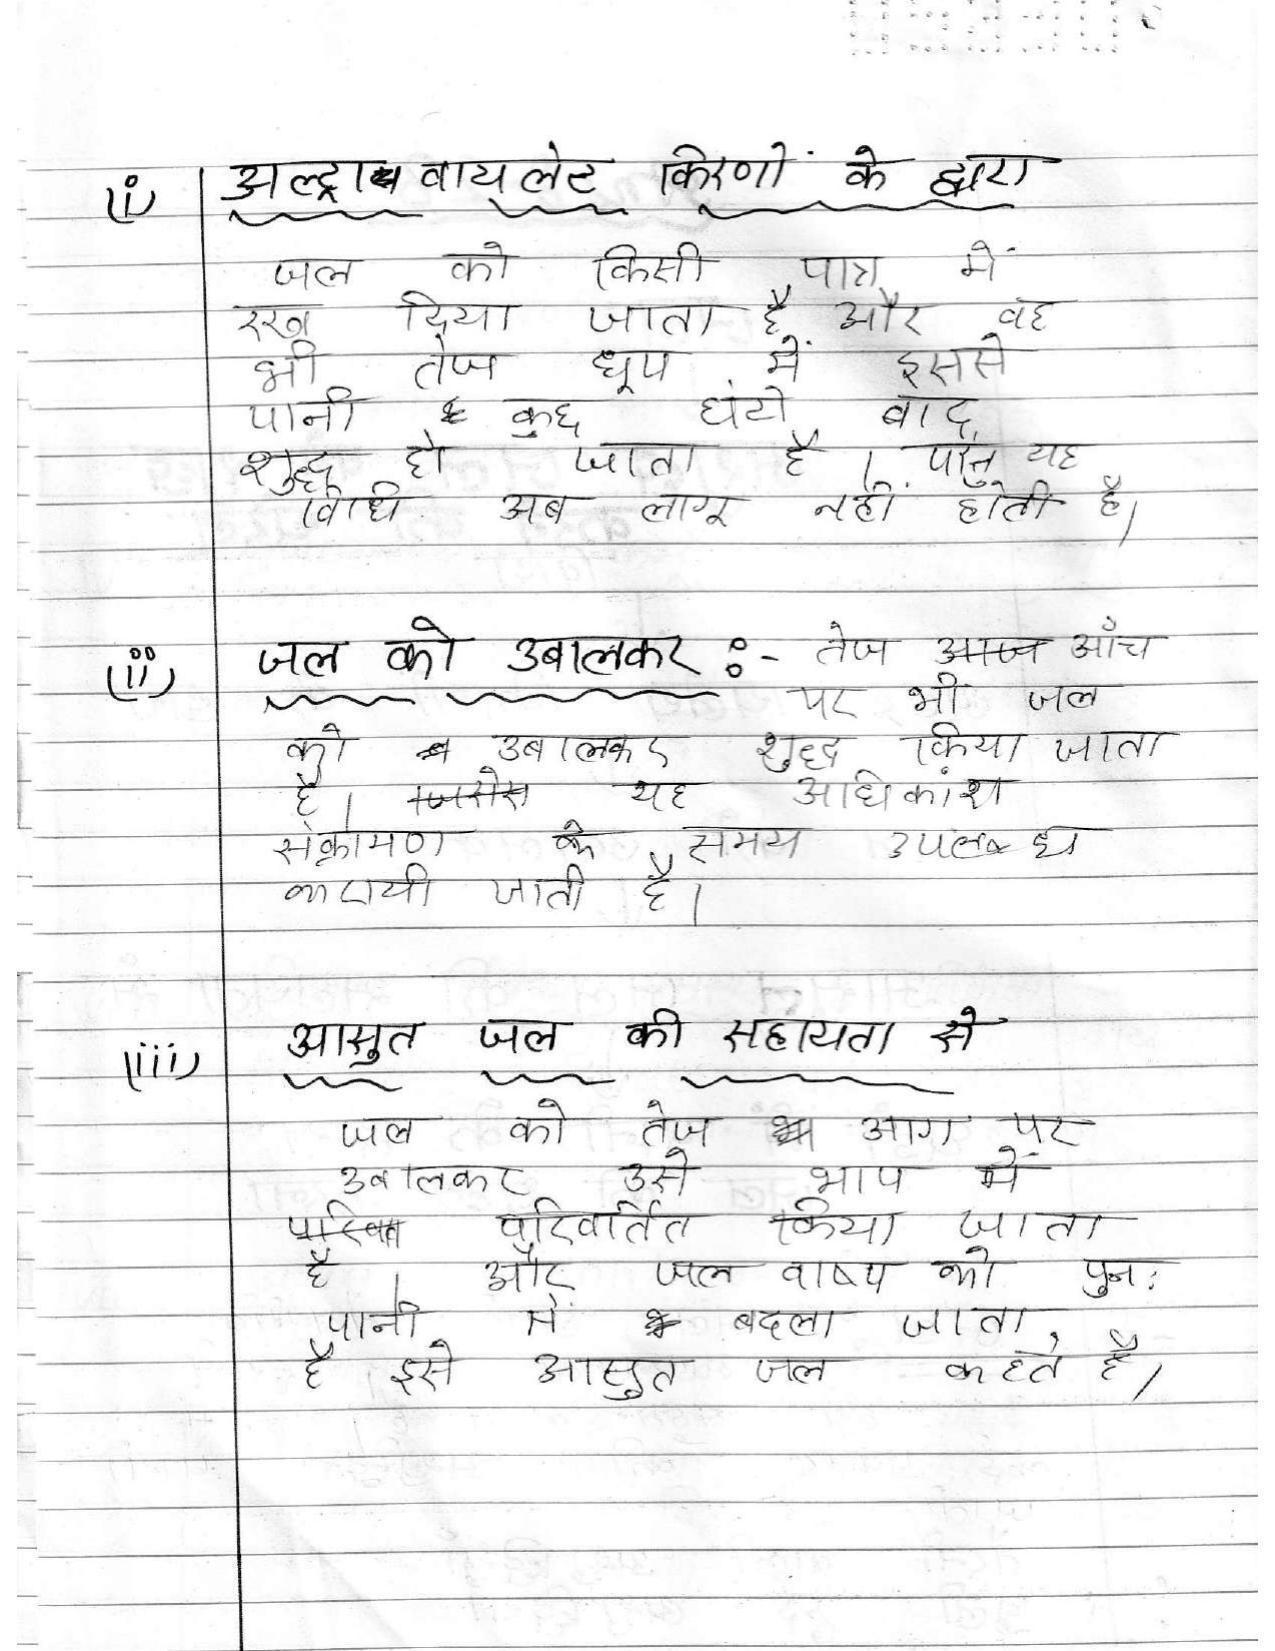 (i) अल्ट्रावायलेट किरणों के द्वारा
जल को किसी पात्र में
रख दिया जाता है और वह
भी तेज धूप में इससे
पानी कुछ घंटो बाद
शुद्ध हो जाता है । परंतु यह
विधि अब लागू नहीं होती है।
(ii) जल को उबालकर :- तेज आँच
पर भी जल
को उबालकर शुद्ध किया जाता
है। यह अधिकांश
संक्रामण के समय उपलब्ध
करायी जाती है।
(iii) आसुत जल की सहायता से
जल को तेज आग पर
उबालकर उसे भाप में
परिवर्तित किया जाता
है । और जल वाष्प को पुनः
पानी में बदला जाता
है इसे आसुत जल कहते है।